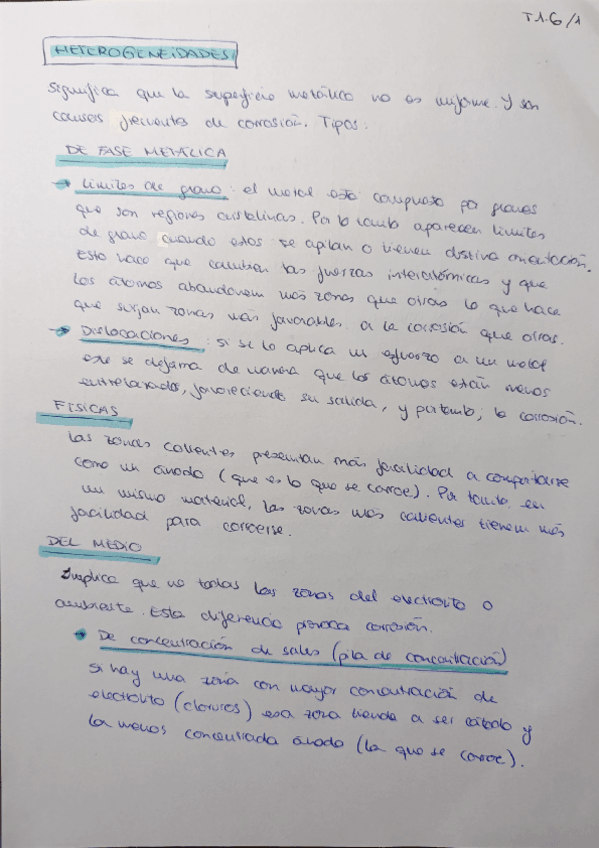 T1.6/1
HETEROGENEIDADES:
Significa que la superficie metálica no es uniforme. Y son
causas frecuentes de corrosión. Tipos:
DE FASE METÁLICA
→ Límites de grano: el metal está compuesto por granos
que son regiones cristalinas. Por lo tanto aparecen límites
de grano cuando estos se apilan o tienen distinta orientación.
Esto hace que cambien las fuerzas interatómicas y que
los átomos abandonen más zonas que otras lo que hace
que surjan zonas más favorables a la corrosión que otras.
→ Dislocaciones: si se le aplica un esfuerzo a un metal
este se deforma de manera que los átomos están menos
entrelazados, favoreciendo su salida, y por tanto, la corrosión.
FÍSICAS
Las zonas calientes presentan más facilidad a comportarse
como un ánodo (que es lo que se corroe). Por tanto, en
un mismo material, las zonas más calientes tienen más
facilidad para corroerse.
DEL MEDIO
Implica que no todas las zonas del electrolito o
ambiente. Esta diferencia provoca corrosión.
→ De concentración de sales (pila de concentración)
si hay una zona con mayor concentración de
electrolito (cloruros) esa zona tiende a ser cátodo y
la menos concentrada ánodo (la que se corroe).